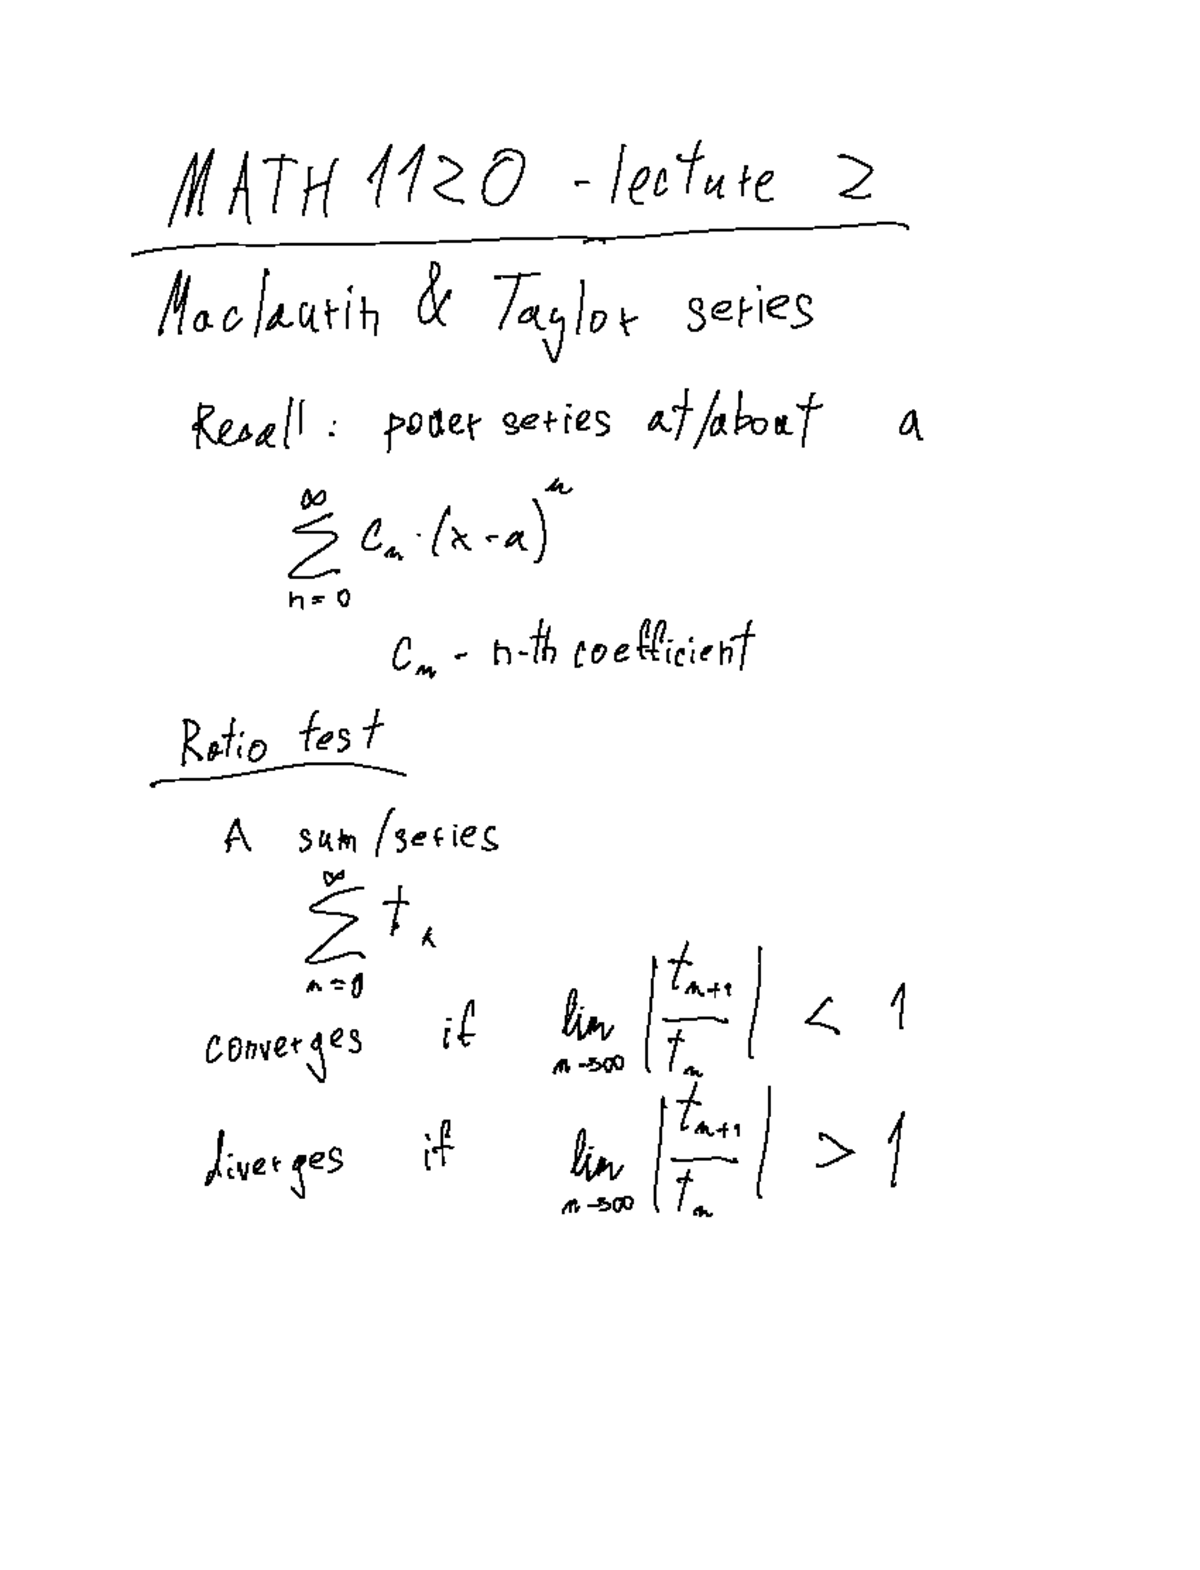 MATH 1120 - lecture 2
Maclaurin & Taylor series
Recall: power series at/about a
∞
∑ cₙ · (x - a)ⁿ
n = 0
cₙ - n-th coefficient
Ratio test
A sum/series
∞
∑ tₙ
n = 0
converges if lim n→∞ |tₙ₊₁ / tₙ| < 1
diverges if lim n→∞ |tₙ₊₁ / tₙ| > 1